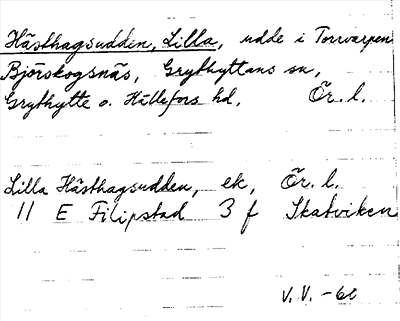 Hästhagsudden, Lilla, udde i Torrvarpen
Björskogsnäs, Grythyttans sn,
Grythytte o. Hällefors hd, Ör. l.
Lilla Hästhagsudden, ek, Ör. l.
11 E Filipstad 3 f Skatviken
V. V. -60